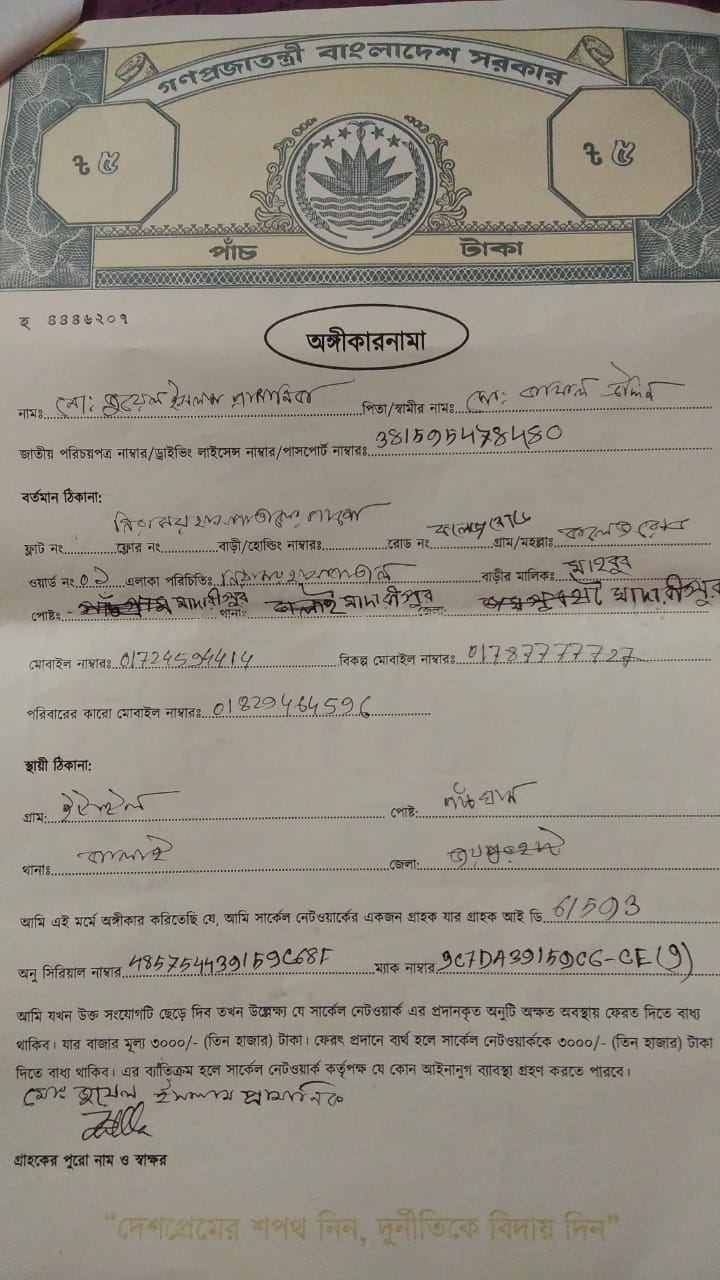 গণপ্রজাতন্ত্রী বাংলাদেশ সরকার
৳ ৫ ৳ ৫
পাঁচ টাকা
হ ৪৪৪৬২০৭
অঙ্গীকারনামা
নামঃ মো: জুয়েল ইসলাম প্রামানিক পিতা/স্বামীর নামঃ মো:
জাতীয় পরিচয়পত্র নাম্বার/ড্রাইভিং লাইসেন্স নাম্বার/পাসপোর্ট নাম্বারঃ 381595478480
বর্তমান ঠিকানা:
নিরাময় হাসপাতালের
ফ্লাট নং ফ্লোর নং বাড়ী/হোল্ডিং নাম্বারঃ রোড নং কলেজ রোড গ্রাম/মহল্লাঃ কলেজ রোড
ওয়ার্ড নং ০২ এলাকা পরিচিতিঃ নিরাময় হাসপাতাল বাড়ীর মালিকঃ মাহবুব
পোষ্টঃ মাদারীপুর থানাঃ মাদারীপুর জেলাঃ মাদারীপুর
মোবাইল নাম্বারঃ 01724594414 বিকল্প মোবাইল নাম্বারঃ 01787777727
পরিবারের কারো মোবাইল নাম্বারঃ 01829464596
স্থায়ী ঠিকানা:
গ্রাম: পোষ্ট: পাঁচগ্রাম
থানাঃ কালাই জেলা: জয়পুরহাট
আমি এই মর্মে অঙ্গীকার করিতেছি যে, আমি সার্কেল নেটওয়ার্কের একজন গ্রাহক যার গ্রাহক আই ডি 61593
অনু সিরিয়াল নাম্বার 485754439159C68F ম্যাক নাম্বার 9C7DA39159C6-CE(9)
আমি যখন উক্ত সংযোগটি ছেড়ে দিব তখন উল্লেক্ষ্য যে সার্কেল নেটওয়ার্ক এর প্রদানকৃত অনুটি অক্ষত অবস্থায় ফেরত দিতে বাধ্য
থাকিব। যার বাজার মূল্য ৩০০০/- (তিন হাজার) টাকা। ফেরৎ প্রদানে ব্যর্থ হলে সার্কেল নেটওয়ার্ককে ৩০০০/- (তিন হাজার) টাকা
দিতে বাধ্য থাকিব। এর ব্যতিক্রম হলে সার্কেল নেটওয়ার্ক কর্তৃপক্ষ যে কোন আইনানুগ ব্যাবস্থা গ্রহণ করতে পারবে।
মোঃ জুয়েল ইসলাম প্রামানিক
গ্রাহকের পুরো নাম ও স্বাক্ষর
“দেশপ্রেমের শপথ নিন, দুর্নীতিকে বিদায় দিন”